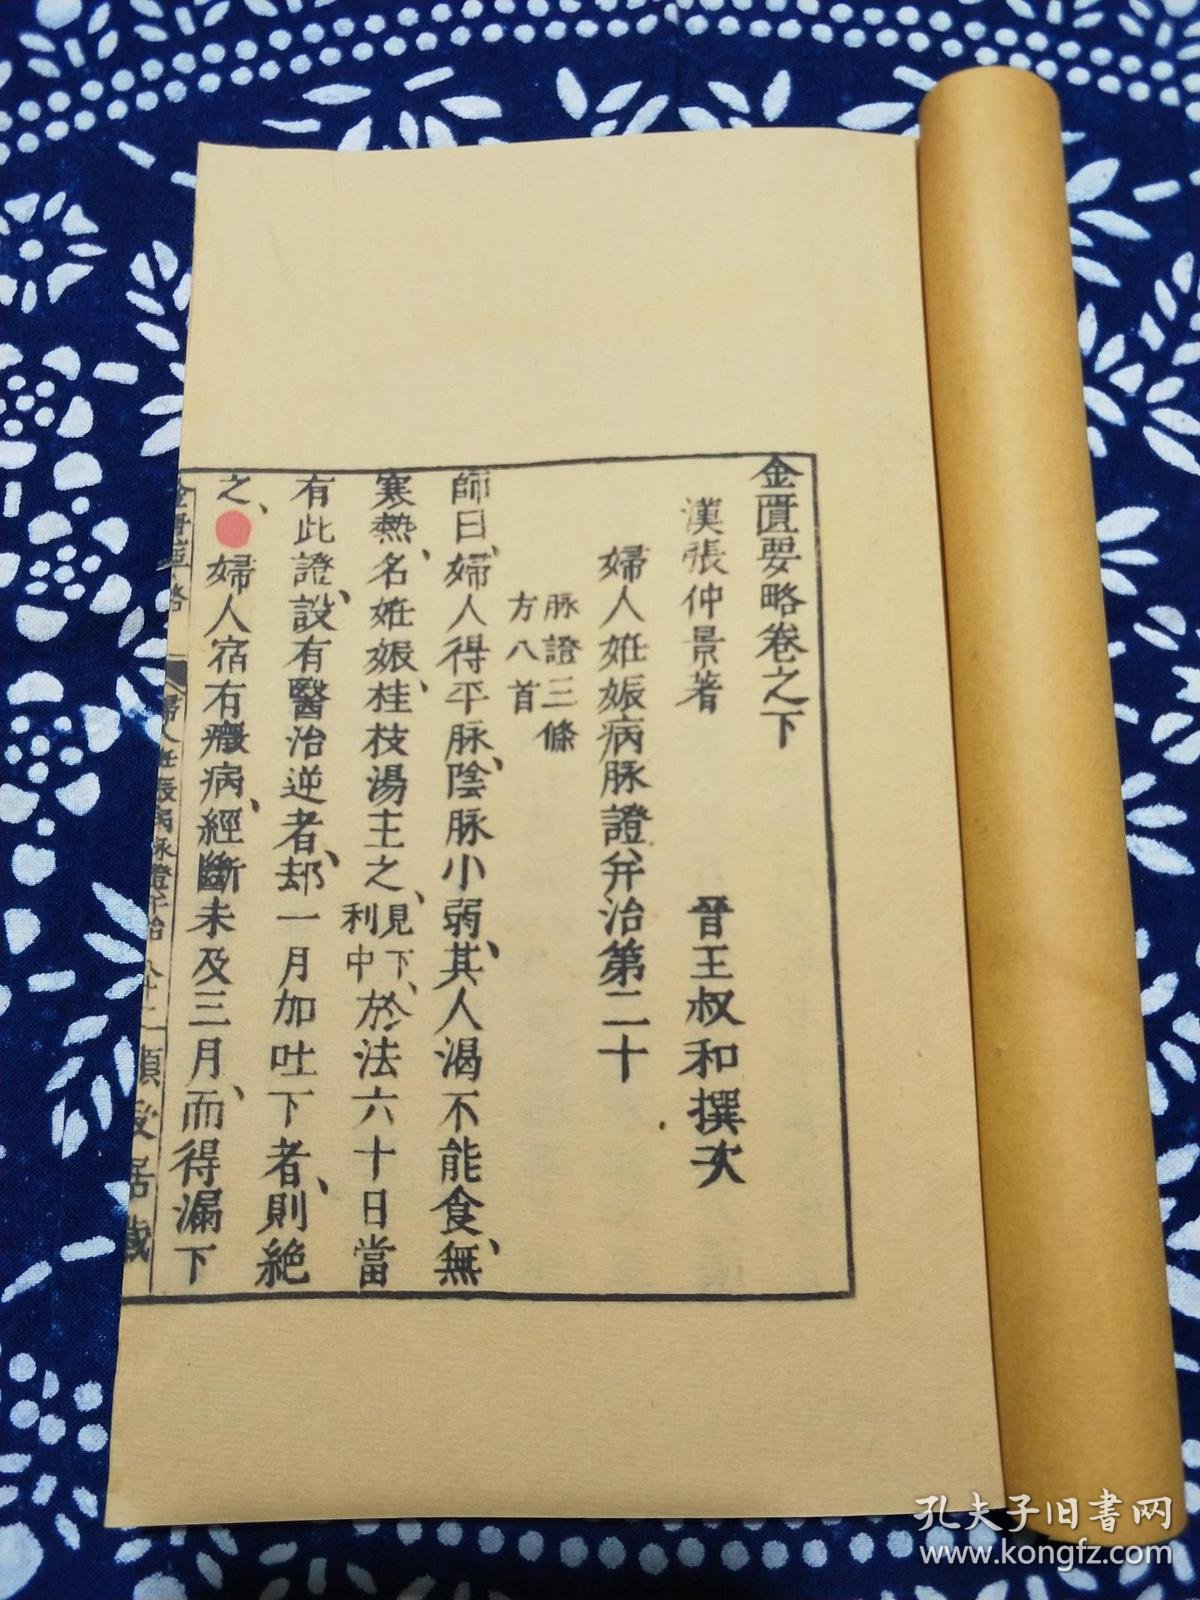 金匱要略卷之下
漢張仲景著　晉王叔和撰次
婦人妊娠病脉證并治第二十
脉證三條
方八首
師曰、婦人得平脉、陰脉小弱、其人渴不能食、無
寒熱、名妊娠、桂枝湯主之、見下利中、於法六十日當
有此證、設有醫治逆者、却一月加吐下者、則絶
之、婦人宿有癥病、經斷未及三月、而得漏下
婦人妊娠病脉證并治
孔夫子旧書网
www.kongfz.com